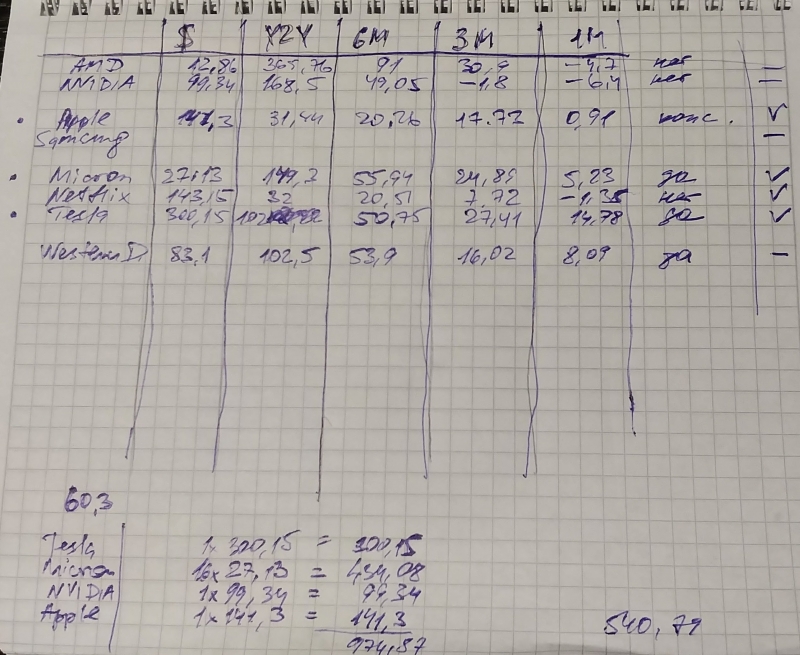 $ Y2Y 6M 3M 1M
AMD 12,86 365,76 91 30,9 -4,7 нет —
NVIDIA 99,34 168,5 49,05 -1,8 -6,4 нет —
Apple 141,3 31,44 20,26 17.72 0,91 конс. ✓
Samsung —
Micron 27,13 149,7 55,94 24,89 5,23 да ✓
Netflix 143,15 32 20,51 7,72 -1,35 нет ✓
Tesla 300,15 50,75 27,41 14,78 да ✓
Western D. 83,1 102,5 53,9 16,02 8,09 да —
60,3
Tesla 1x 300,15 = 300,15
Micron 16x 27,13 = 434,08
NVIDIA 1x 99,34 = 99,34
Apple 1x 141,3 = 141,3
974,87
540,79